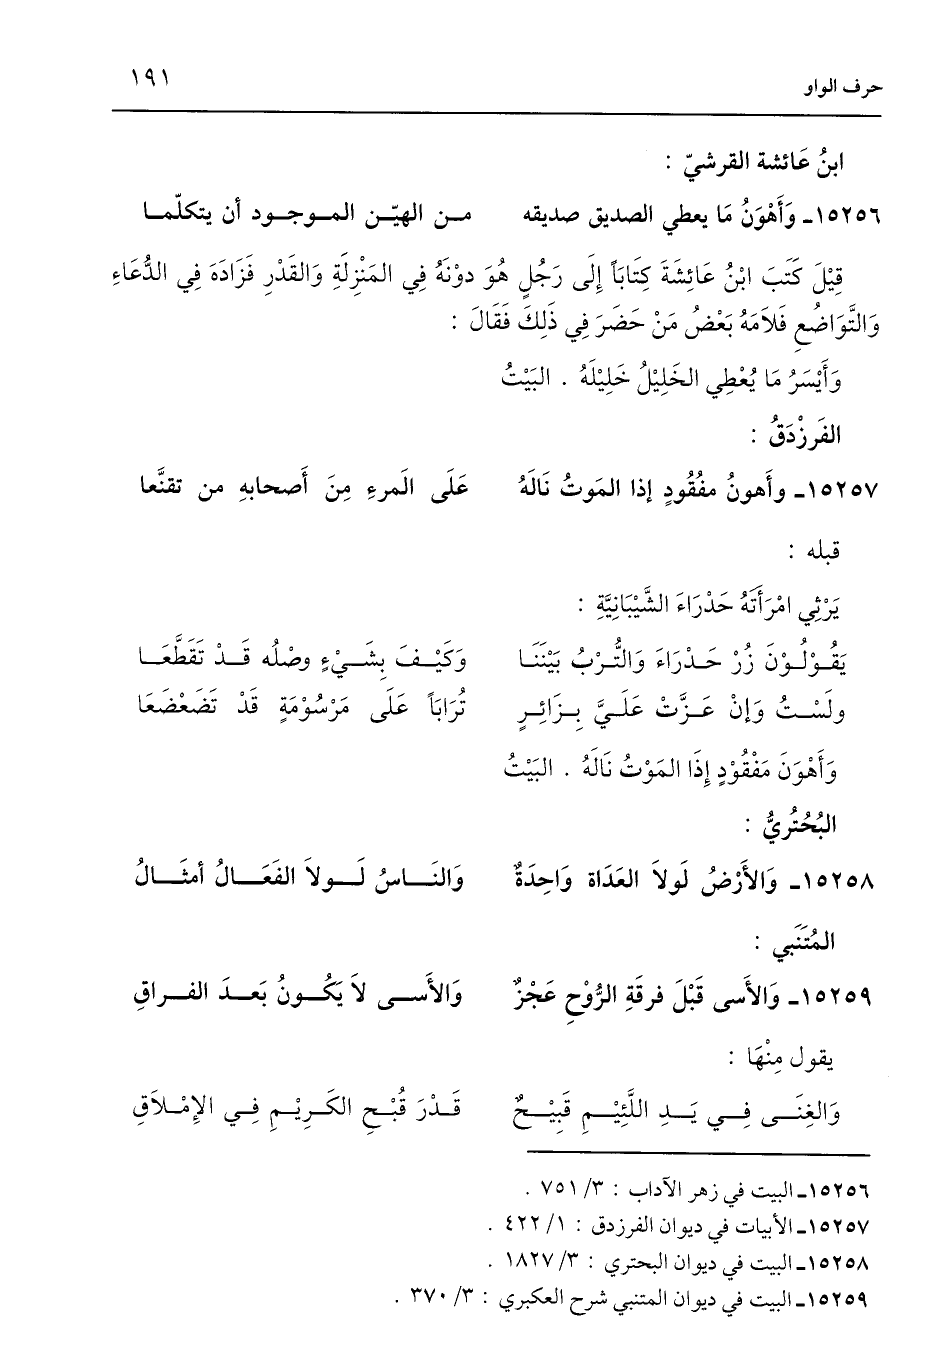 حرف الواو ١٩١
ابنُ عَائشة القرشيّ :
١٥٢٥٦ـ وَأَهْوَنُ مَا يعطي الصديق صديقه من الهيّن الموجود أن يتكلّما
قِيْلَ كَتَبَ ابْنُ عَائِشَةَ كِتَابَاً إِلَى رَجُلٍ هُوَ دوْنَهُ فِي المَنْزِلَةِ وَالقَدْرِ فَزَادَهَ فِي الدُّعَاءِ
وَالتَّوَاضُعِ فَلاَمَهُ بَعْضُ مَنْ حَضَرَ فِي ذَلِكَ فَقَالَ :
وَأَيْسَرُ مَا يُعْطِي الخَلِيْلُ خَلِيْلَهُ . البَيْتُ
الفَرزْدَقُ :
١٥٢٥٧ـ وأَهونُ مفْقُودٍ إذا المَوتُ نَالَهُ عَلَى المَرءِ مِنَ أَصحابهِ من تقنَّعا
قبله :
يَرْثِي امْرَأَتَهُ حَدْرَاءَ الشَّيْبَانِيَّةِ :
يَقُوْلُوْنَ زُرْ حَدْرَاءَ وَالتُّرْبُ بَيْنَنَا وَكَيْفَ بِشَيْءٍ وصْلُه قَدْ تَقَطَّعَا
ولَسْتُ وَإِنْ عَزَّتْ عَلَيَّ بِزَائِرٍ تُرَابَاً عَلَى مَرْسُوْمَةٍ قَدْ تَضَعْضَعَا
وَأَهْوَنَ مَفْقُوْدٍ إِذَا المَوْتُ نَالَهُ . البَيْتُ
البُحْتُريُّ :
١٥٢٥٨ـ وَالأَرْضُ لَولاَ العَدَاة وَاحِدَةٌ وَالنَاسُ لَولاَ الفَعَالُ أمثَالُ
المُتَنَبي :
١٥٢٥٩ـ وَالأَسى قَبْلَ فرقَةِ الرُّوْحِ عَجْزٌ وَالأَسى لاَ يَكُونُ بَعدَ الفراقِ
يقول مِنْهَا :
وَالغِنَى فِي يَدِ اللَّئِيْمِ قَبِيْحٌ قَدْرَ قُبْحِ الكَرِيْمِ فِي الإِمْلاَقِ
١٥٢٥٦ـ البيت في زهر الآداب : ٣/ ٧٥١ .
١٥٢٥٧ـ الأبيات في ديوان الفرزدق : ١/ ٤٢٢ .
١٥٢٥٨ـ البيت في ديوان البحتري : ٣/ ١٨٢٧ .
١٥٢٥٩ـ البيت في ديوان المتنبي شرح العكبري : ٣/ ٣٧٠ .